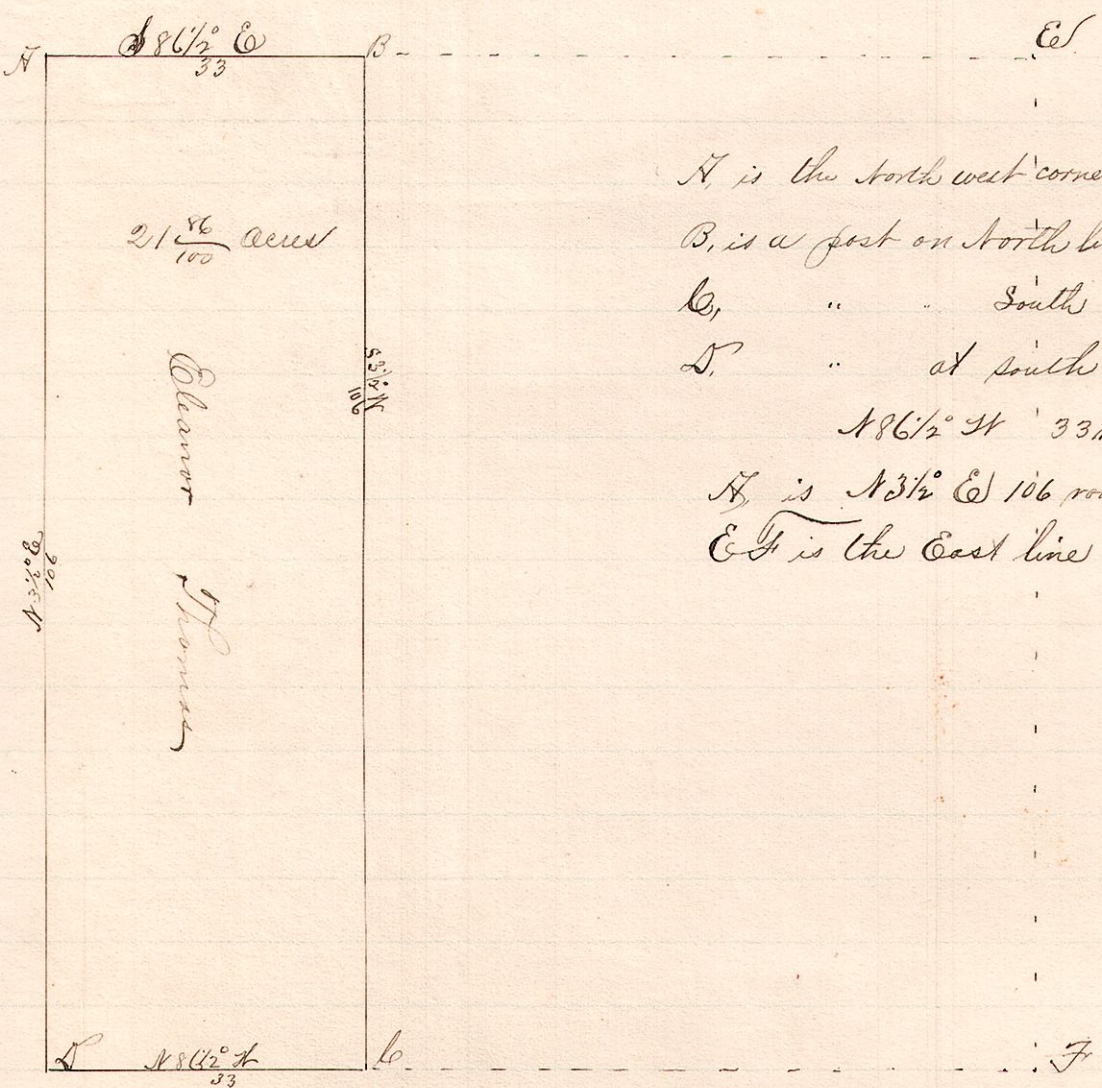 S 86 1/2° E
33
A
B
E
21 86/100 acres
Eleanor Thomas
S 3 1/2° W
106
N 3 1/2° E
106
D
N 86 1/2° W
33
C
F
A, is the North west corne
B, is a post on North li
C, " " South
D, " at south
N 86 1/2° W 33
A, is N 3 1/2° E 106 ro
E F is the East line